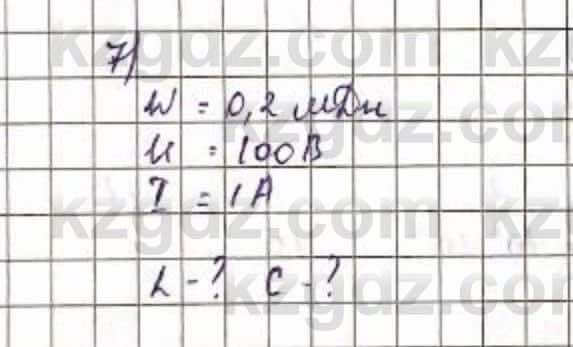 7)
W = 0,2 мДж
U = 100В
I = 1А
L - ? C - ?
kzgdz.com kzgdz.com
kzgdz.com
kzgdz.com
kzgdz.com